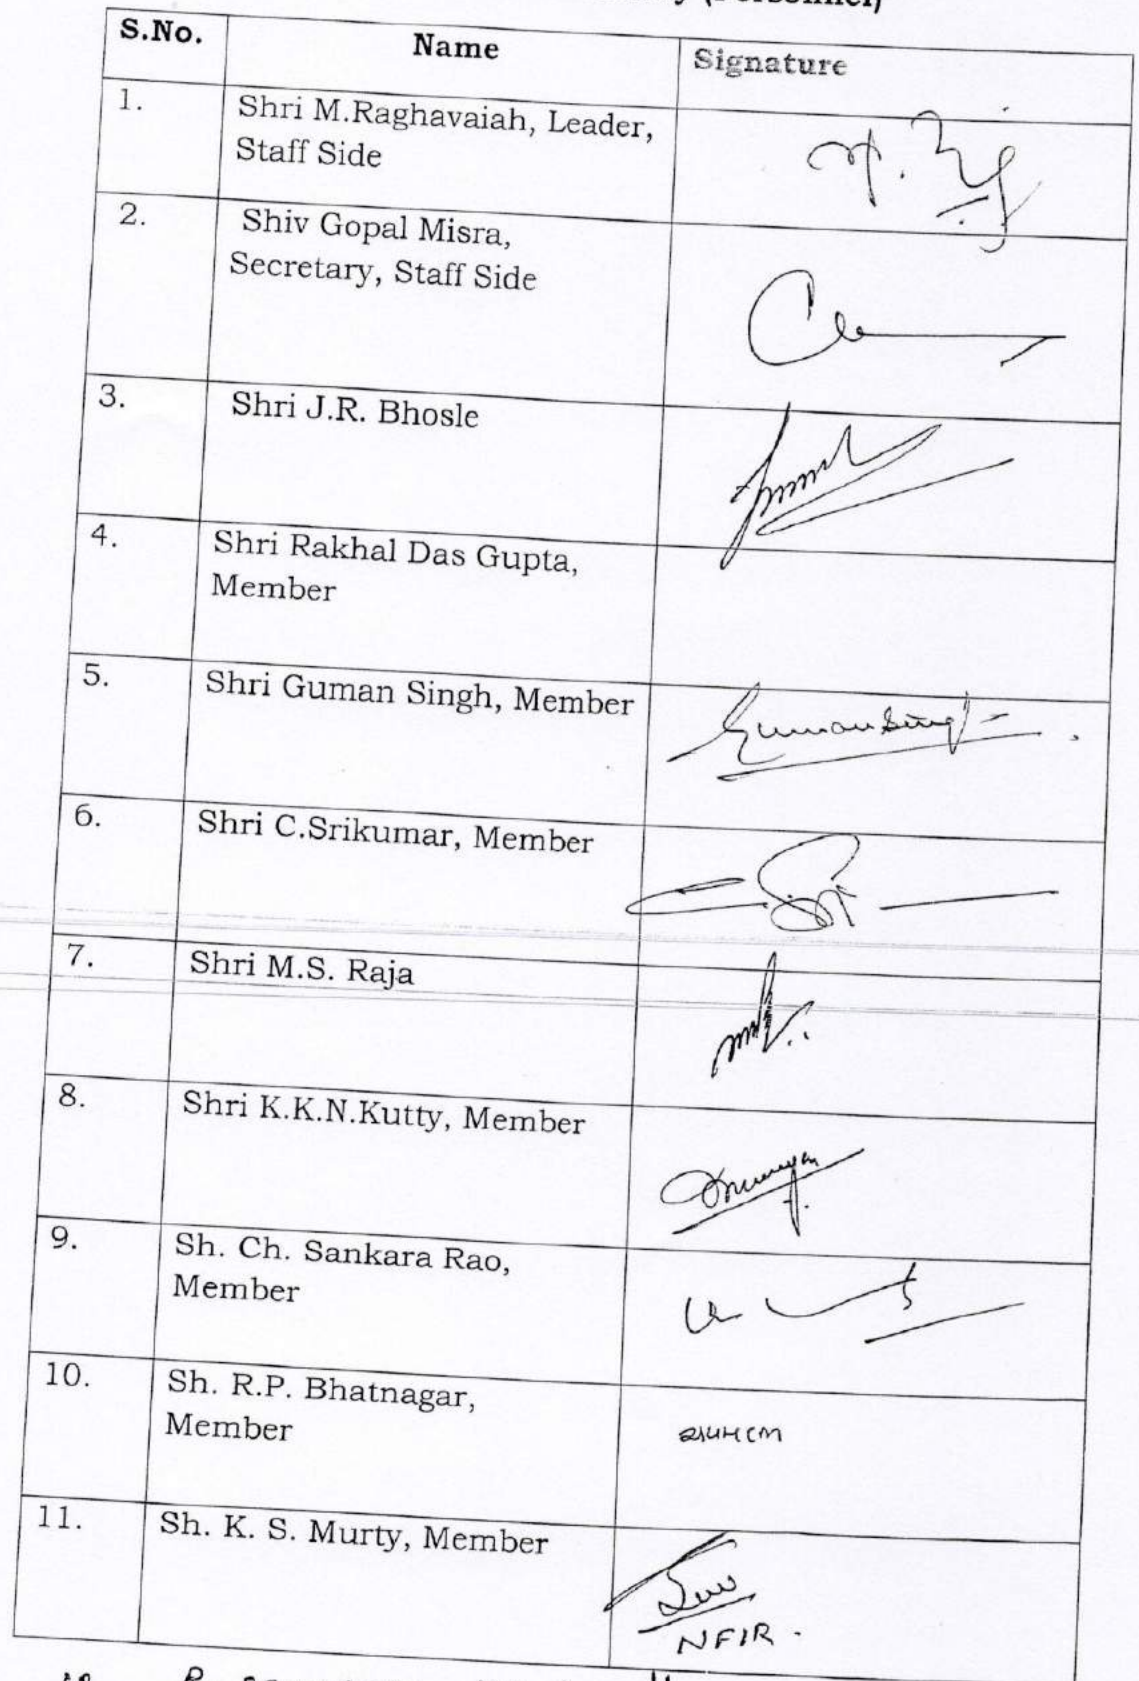 (Personnel)
S.No. Name Signature
1. Shri M.Raghavaiah, Leader,
Staff Side
2. Shiv Gopal Misra,
Secretary, Staff Side
3. Shri J.R. Bhosle
4. Shri Rakhal Das Gupta,
Member
5. Shri Guman Singh, Member Guman Singh
6. Shri C.Srikumar, Member
7. Shri M.S. Raja
8. Shri K.K.N.Kutty, Member
9. Sh. Ch. Sankara Rao,
Member
10. Sh. R.P. Bhatnagar,
Member
11. Sh. K. S. Murty, Member
NFIR.